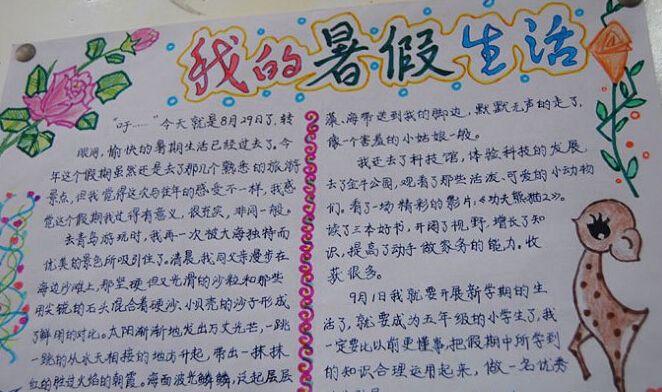 我的暑假生活
"吁……"今天就是8月29日了,转
眼间,愉快的暑期生活已经过去了。今
年这个假期虽然还是去了那几个熟悉的旅游
景点,但我觉得这次与往年的感受不一样,我感
觉这个假期我过得有意义,很充实,非同一般。
去青岛游玩时,我再一次被大海独特而
优美的景色所吸引住了。清晨,我同父亲漫步在
海边沙滩上,那坚硬但又光滑的沙粒和那些
用尖锐的石头混合着硬沙、小贝壳的沙子形成
了鲜明的对比。太阳渐渐地发出万丈光芒,一跳
一跳的从水天相接的地方升起,带出一抹抹
红的胜过火焰的朝霞。海面波光鳞鳞,泛起层层
藻、海带送到我的脚边,默默无声的走了,
像一个害羞的小姑娘一般。
我还去了科技馆,体验科技的发展,
去了金牛公园,观看了那些活泼、可爱的小动物
们。看了一场精彩的影片,《功夫熊猫2》。
读了三本好书,开阔了视野,增长了知
识,提高了动手做家务的能力。收
获很多。
9月1日我就要开展新学期的生
活了,就要成为五年级的小学生了,我
一定要比以前更懂事,把假期中所学到
的知识合理运用起来,做一名优秀